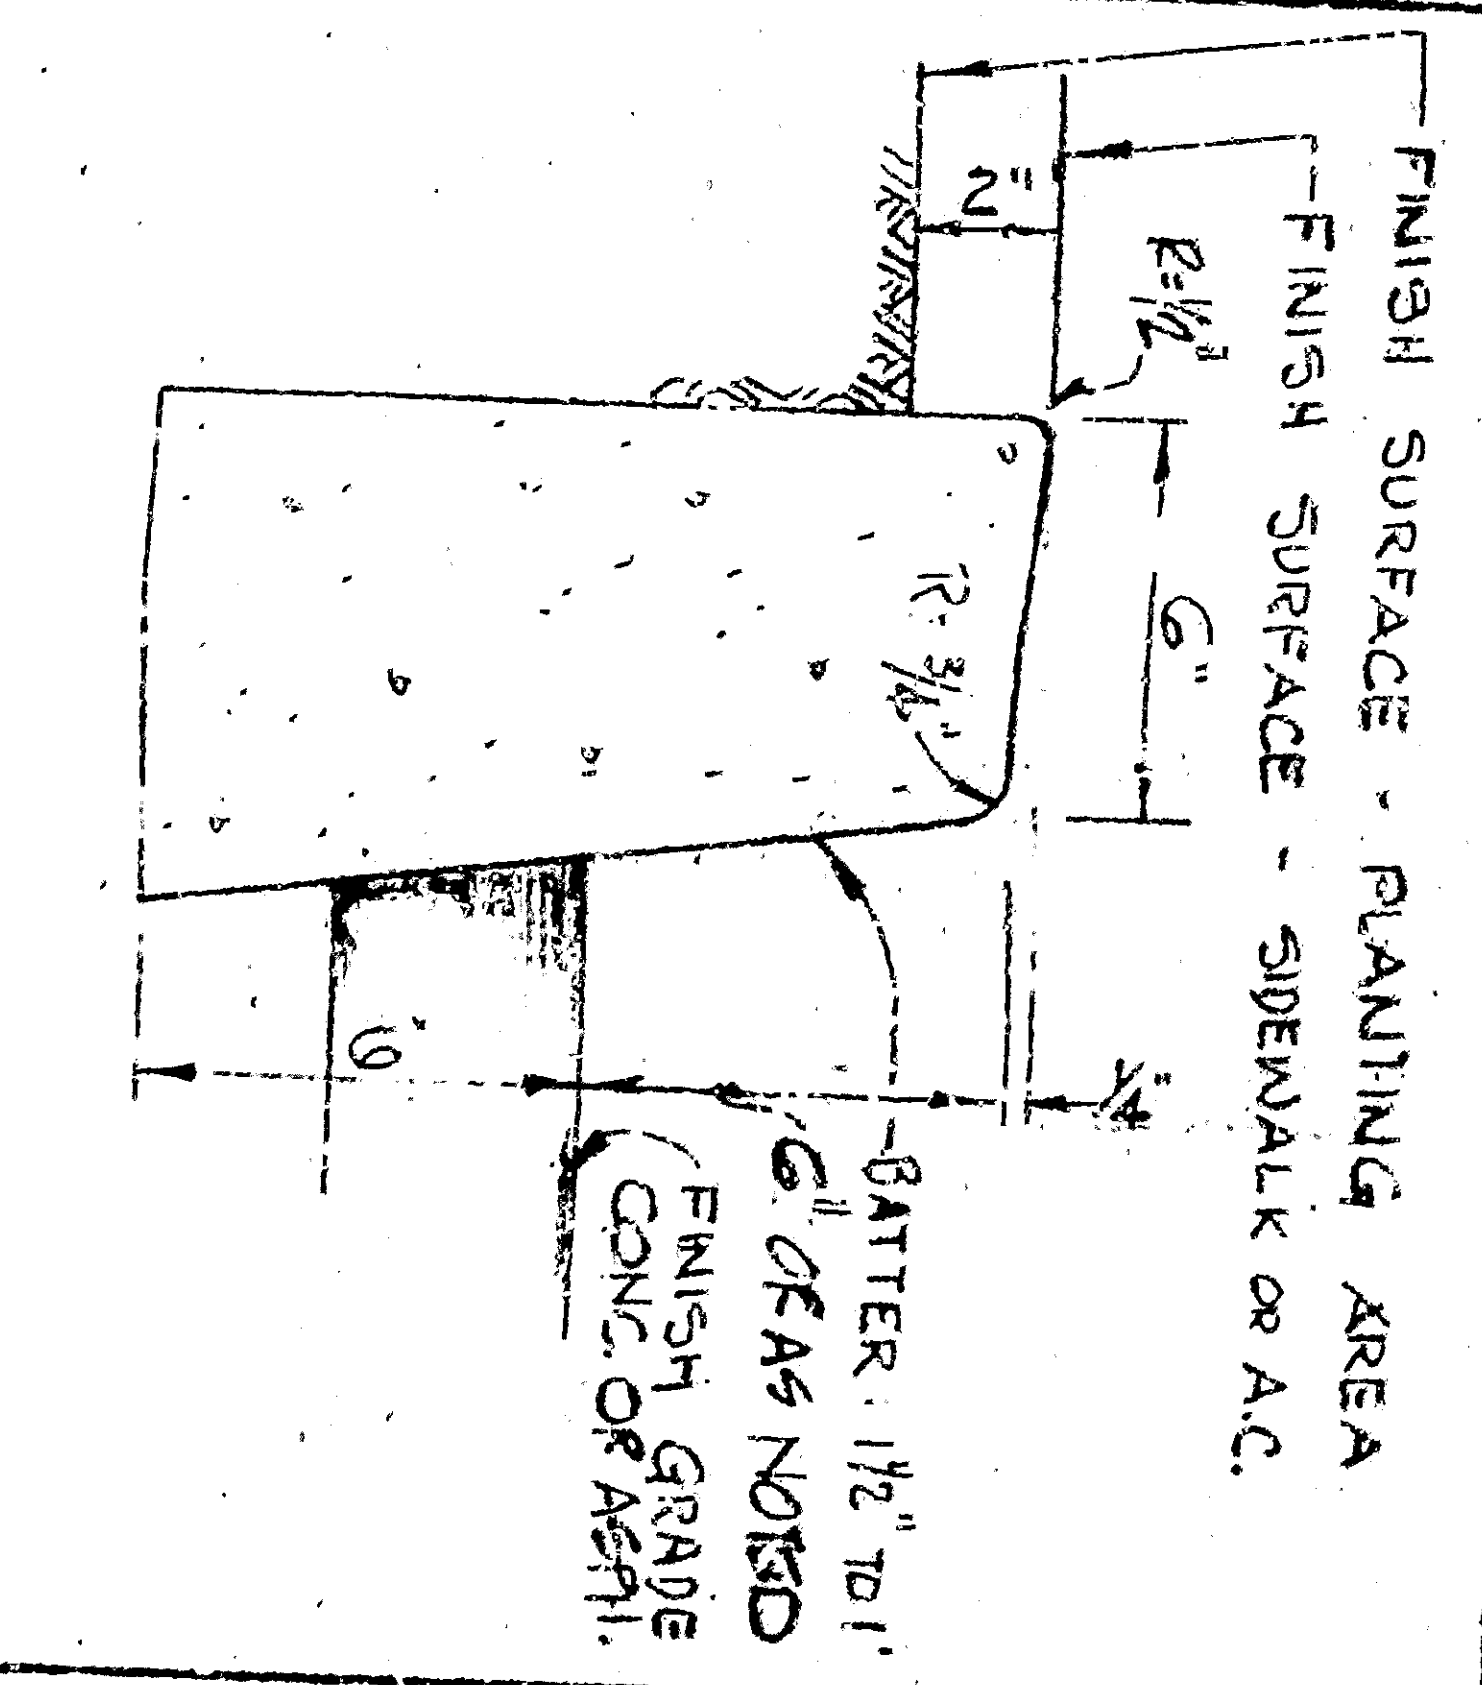 FINISH SURFACE - PLANTING AREA
FINISH SURFACE - SIDEWALK OR A.C.
2"
R=1/2"
6"
R. 3/4"
1/4"
BATTER. 1 1/2" TO 1'
6" OR AS NOTED
FINISH GRADE
CONC. OR ASPH.
6"